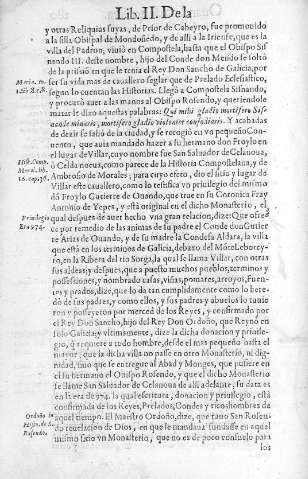 Lib. II. De la
y otras Reliquias suyas, de Prior de Cabeyro, fue promouido
a la silla Obispal de Mondoñedo, y de alli a la Iriense, que es la
villa del Padron, viuiò en Compostela, hasta que el Obispo Sis
nando III. deste nombre, hijo del Conde don Menido se soltò
de la prisiõ en que le tenia el Rey Don Sancho de Galicia, por
ser su vida mas de cauallero seglar que de Prelado Eclesiastico,
segun lo cuentan las Historias. Llegò a Compostela Sisnando,
y procurò auer a las manos al Obispo Rosendo, y queriendole
matar le dixo aquestas palabras: Qui mihi gladio mortifero
minaris, mortifero gladio confodiaris. Y acabadas
de dezir se saliò de la ciudad, y se recogiò en vn pequeño Con
uento, que auia mandado hazer a su hermano don Froylo en
el lugar de Villar, cuyo nombre fue San Saluador de Celanoua,
ò Celanoua, como parece de la Historia Compostelana, y de
Ambrosio de Morales; para cuyo efeto, dio el sitio y lugar de
Villar este cauallero, como lo testifica vn priuilegio del mismo
dõ Froylo Gutierre de Ouando, que trae en su Coronica Fray
Antonio de Yepes, y està original en el dicho Monasterio, el
qual despues de auer hecho vna gran relacion, dize: Que ofre
ce por remedio de las animas de su padre el Conde don Gutier
re Arias de Ouando, y de su madre la Condesa Aldara, la villa
que està en los terminos de Galicia, debaxo del Mõte Leborey
ro, en la Ribera del rio Sorga, la qual se llama Villar, con otras
sus aldeas y despues, que a puesto muchos pueblos, terminos y
possessiones, y nombrado casas, viñas, pomares, arroyos, Fuen
tes, y prados, dize, que lo da tan cumplidamente como lo here
dò de sus padres, y como ellos, y sus padres y abuelos lo tuuie
ron y posseyeron por merced de los Reyes, y confirmado por
el Rey Dõ Sancho, hijo del Rey Don Ordoño, que Reynò en
solo Galicia, y vltimamente, dize la dicha donacion y priuile-
gio, q̃ requiere a todo hombre, desde el mas pequeño hasta el
mayor, que la dicha villa no passe en otro Monasterio, ni dig
nidad, sino que se entregue al Abad y Monges, que pusiere en
el su hermano el Obispo Rosendo, y que el dicho Monasterio
se llame San Saluador de Celanoua de alli adelante, su data es
en la era de 974. la qual escritura, donacion y priuilegio, està
confirmada de los Reyes, Prelados, Condes y ricos-hombres de
aquel tiempo. El Maestro Ordoño, dize, que tuuo San Rosen-
do reuelacion de Dios, en que le mandaua fundasse en aquel
mismo sitio vn Monasterio, que no es de poco consuelo para
los
Hist. Comp.
Moral. lib.
16. cap. 36.
Priuilegio
Era 974.
Ordoño in
Rosendo.